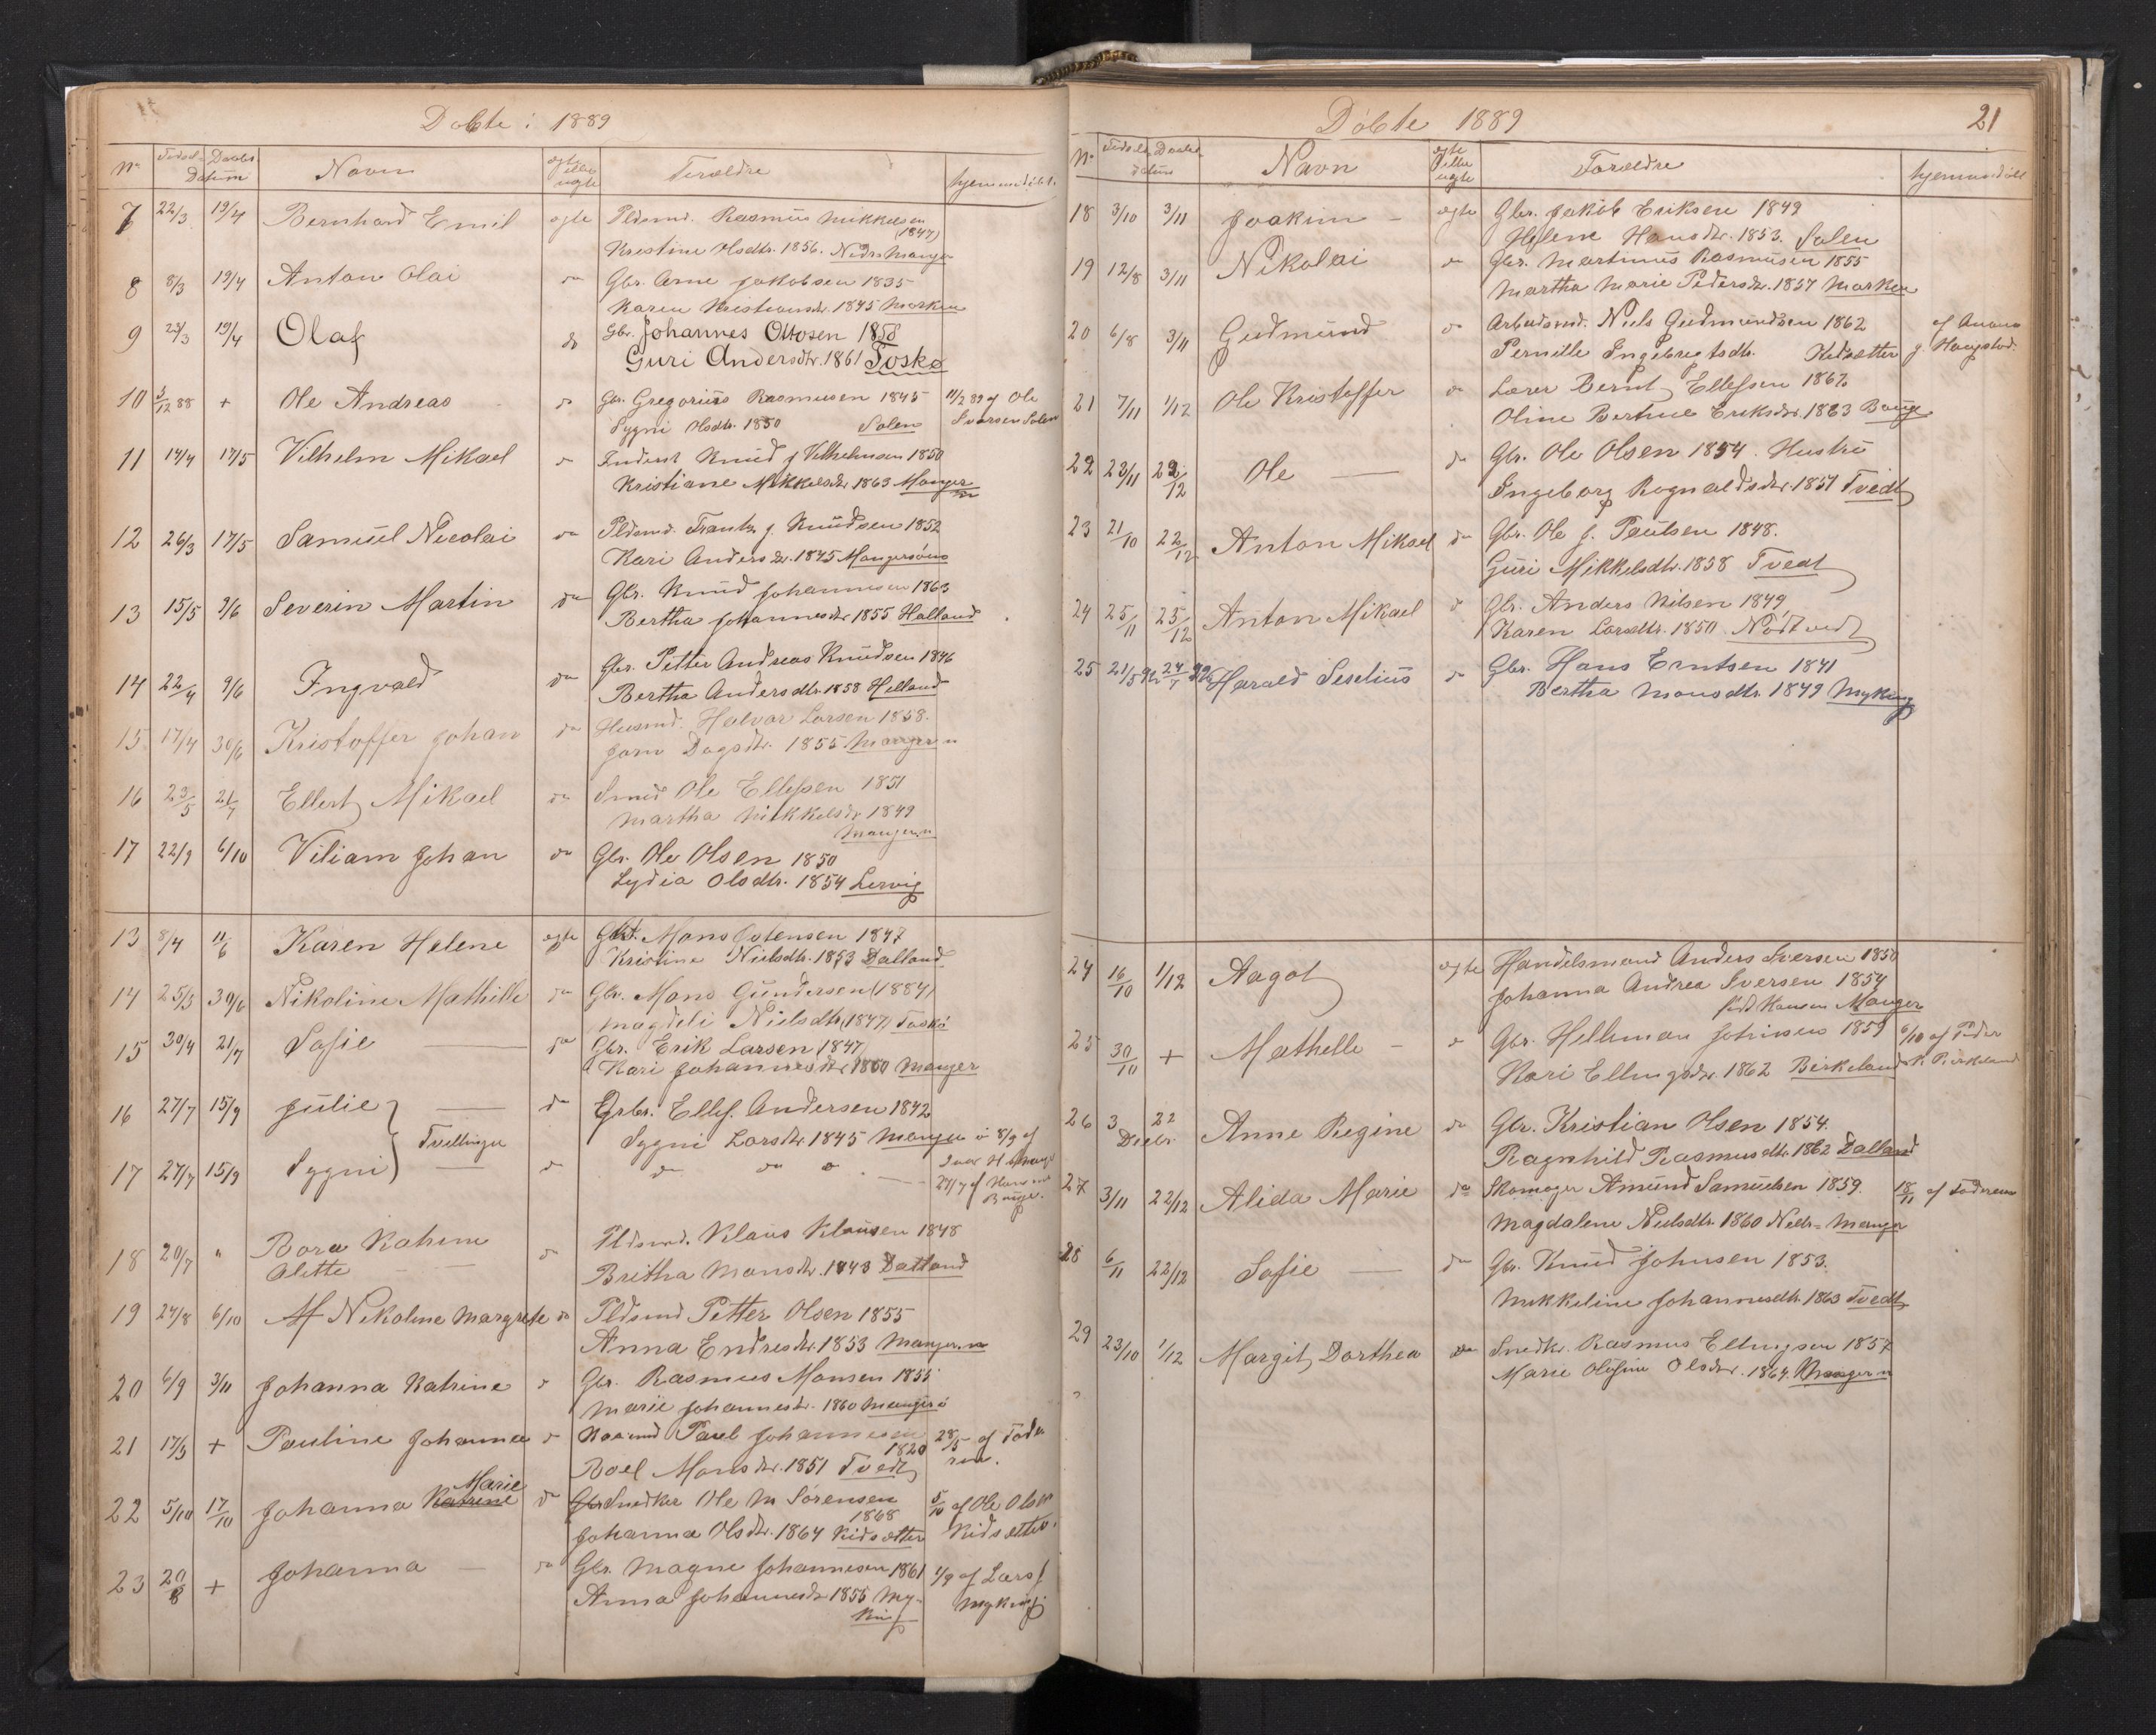 Døbte i 1889
No Fødsels Daabs Datum Navn ægte eller uægte Forældre hjemmedøbt
7 22/3 19/4 Bernhard Emil ægte Pldsmd. Rasmus Mikkelsen (1847)
Kristine Olsdtr. 1856. Nedre Manger
8 8/3 19/4 Anton Olai do Gbr. Arne Jakobsen 1835
Karen Kristiansdtr. 1845 Marken
9 23/3 19/4 Olaf do Gbr. Johannes Ottosen 1858
Guri Andersdtr. 1861 Toskø
10 3/12 88 + Ole Andreas do Gbr. Gregorius Rasmussen 1845 11/2 89 af Ole
Sygni Olsdtr. 1850 Solen Ivarsen Solen
11 14/4 17/5 Vilhelm Mikael do Knud J Vilhelmsen 1850
Kristiane Mikkelsdtr 1863 Manger
12 26/3 17/5 Samuel Nicolai do Pldsmd. Frantz J. Knudsen 1852
Kari Andersdr. 1845 Mangersnes
13 15/5 9/6 Severin Martin do Gbr. Knud Johannesen 1863
Bertha Johannesdtr 1855 Halland
14 22/4 9/6 Ingvald do Gbr. Petter Andreas Knudsen 1846
Bertha Andersdtr. 1858 Helland
15 17/4 30/6 Kristoffer Johan do Husmd. Halvor Larsen 1858.
Jorn Dagsdtr. 1855 Manger n
16 23/5 21/7 Ellert Mikael do Smed Ole Ellefsen 1851
Martha Mikkelsdtr 1849
Manger n
17 22/9 6/10 Viliam Johan do Gbr. Ole Olsen 1850
Lydia Olsdtr. 1854 Lervig
13 8/4 11/6 Karen Helene ægte Gbr. Mons Ostensen 1847
Kristine Nielsdtr. 1853 Dalland
14 25/5 30/6 Nikoline Mathilde do Gbr. Mons Gundersen (1884)
Magdeli Nielsdtr (1847) Toskø
15 30/4 21/7 Sofie do Gbr. Erik Larsen (1847)
Kari Johannesdtr 1850 Manger
16 27/7 15/9 Julie do Gbr. Ellef. Andersen 1842
Tvillinger Sygni Larsdtr. 1845 Manger 8/9 af
17 27/7 15/9 Sygni do do do do
27/7 af
18 20/7 " Bora Katrine do Pldsmd. Klaus Klausen 1848
Olette Britha Monsdtr. 1843 Dalland
19 24/8 6/10 Nikoline Margrete do Pldsmd Petter Olsen 1855
Anna Endresdtr. 1853 Manger n
20 6/9 3/11 Johanna Katrine do Gbr. Rasmus Monsen 1855
Marie Johannesdr. 1860 Mangerø
21 17/5 + Pauline Johanna do Paul Johannesen 28/5 af Fade
1820 ren.
Roel Monsdtr. 1851 Tvedt
Marie
22 5/10 17/10 Johanna Katrine do Gbr Snedker Ole M Sørensen 5/10 af Ole Olsen
1868
Johanna Olsdtr. 1864 Kidsætter Kidsætter.
23 20/8 + Johanna do Gbr. Magne Johannesen 1861 1/9 af Lars J
Anna Johannesdtr 1855 My- Myking
king
Døbte 1889 21
No Fødsels Daabs datum Navn ægte eller uægte Forældre hjemmedøbt
18 3/10 3/11 Joakim ægte Gbr. Jakob Eriksen 1849
Helene Hansdtr. 1853. Solen
19 12/8 3/11 Nikolai do Gbr. Martinus Rasmussen 1855
Martha Marie Pedersdtr. 1857 Marken
20 6/8 3/11 Gudmund do Arbeidsmd. Niels Gudmundsen 1862
Pernille Ingebrigtsdtr. Kidsætter
21 7/11 1/12 Ole Kristoffer do Lærer Bernt Ellefsen 1862
Oline Bertine Eriksdtr. 1863 Bauge
22 23/11 22/12 Ole do Gbr. Ole Olsen 1854. Hustru
Ingeborg Rognaldsdtr. 1851 Tvedt
23 21/10 22/12 Anton Mikael do Gbr. Ole J. Paulsen 1848.
Guri Mikkelsdtr. 1858 Tvedt
24 25/11 25/12 Anton Mikael do Gbr. Anders Nilsen 1849,
Karen Larsdtr. 1850 Nødtvedt
25 21/5 24/7 Harald Seselius do Gbr. Hans Erntsen 1841
Bertha Monsdtr. 1849 Myking
24 16/10 1/12 Aagot ægte Handelsmand Anders Iversen 1850
Johanna Andrea Iversen 1854
født Hansen Manger
25 30/10 + Mathelle do Gbr. Hellman Johnsen 1859 6/10 af Peder
Kari Ellingsdtr. 1862 Birkeland K. Birkeland
26 3 Decbr. 22 Anne Regine do Gbr. Kristian Olsen 1854.
Ragnhild Rasmusdtr. 1862 Dalland
27 3/11 22/12 Alida Marie do Skomager Amund Samuelsen 1859. 18/11 af Faderen
Magdalene Nielsdtr. 1860 Nedre Manger
28 6/11 22/12 Sofie do Gbr. Knud Johnsen 1853.
Mikkeline Johannesdtr. 1863 Tvedt
29 23/10 1/12 Margit Dorthea do Snedkr. Rasmus Ellingsen 1857
Marie Olefine Olsdtr. 1864. Manger n